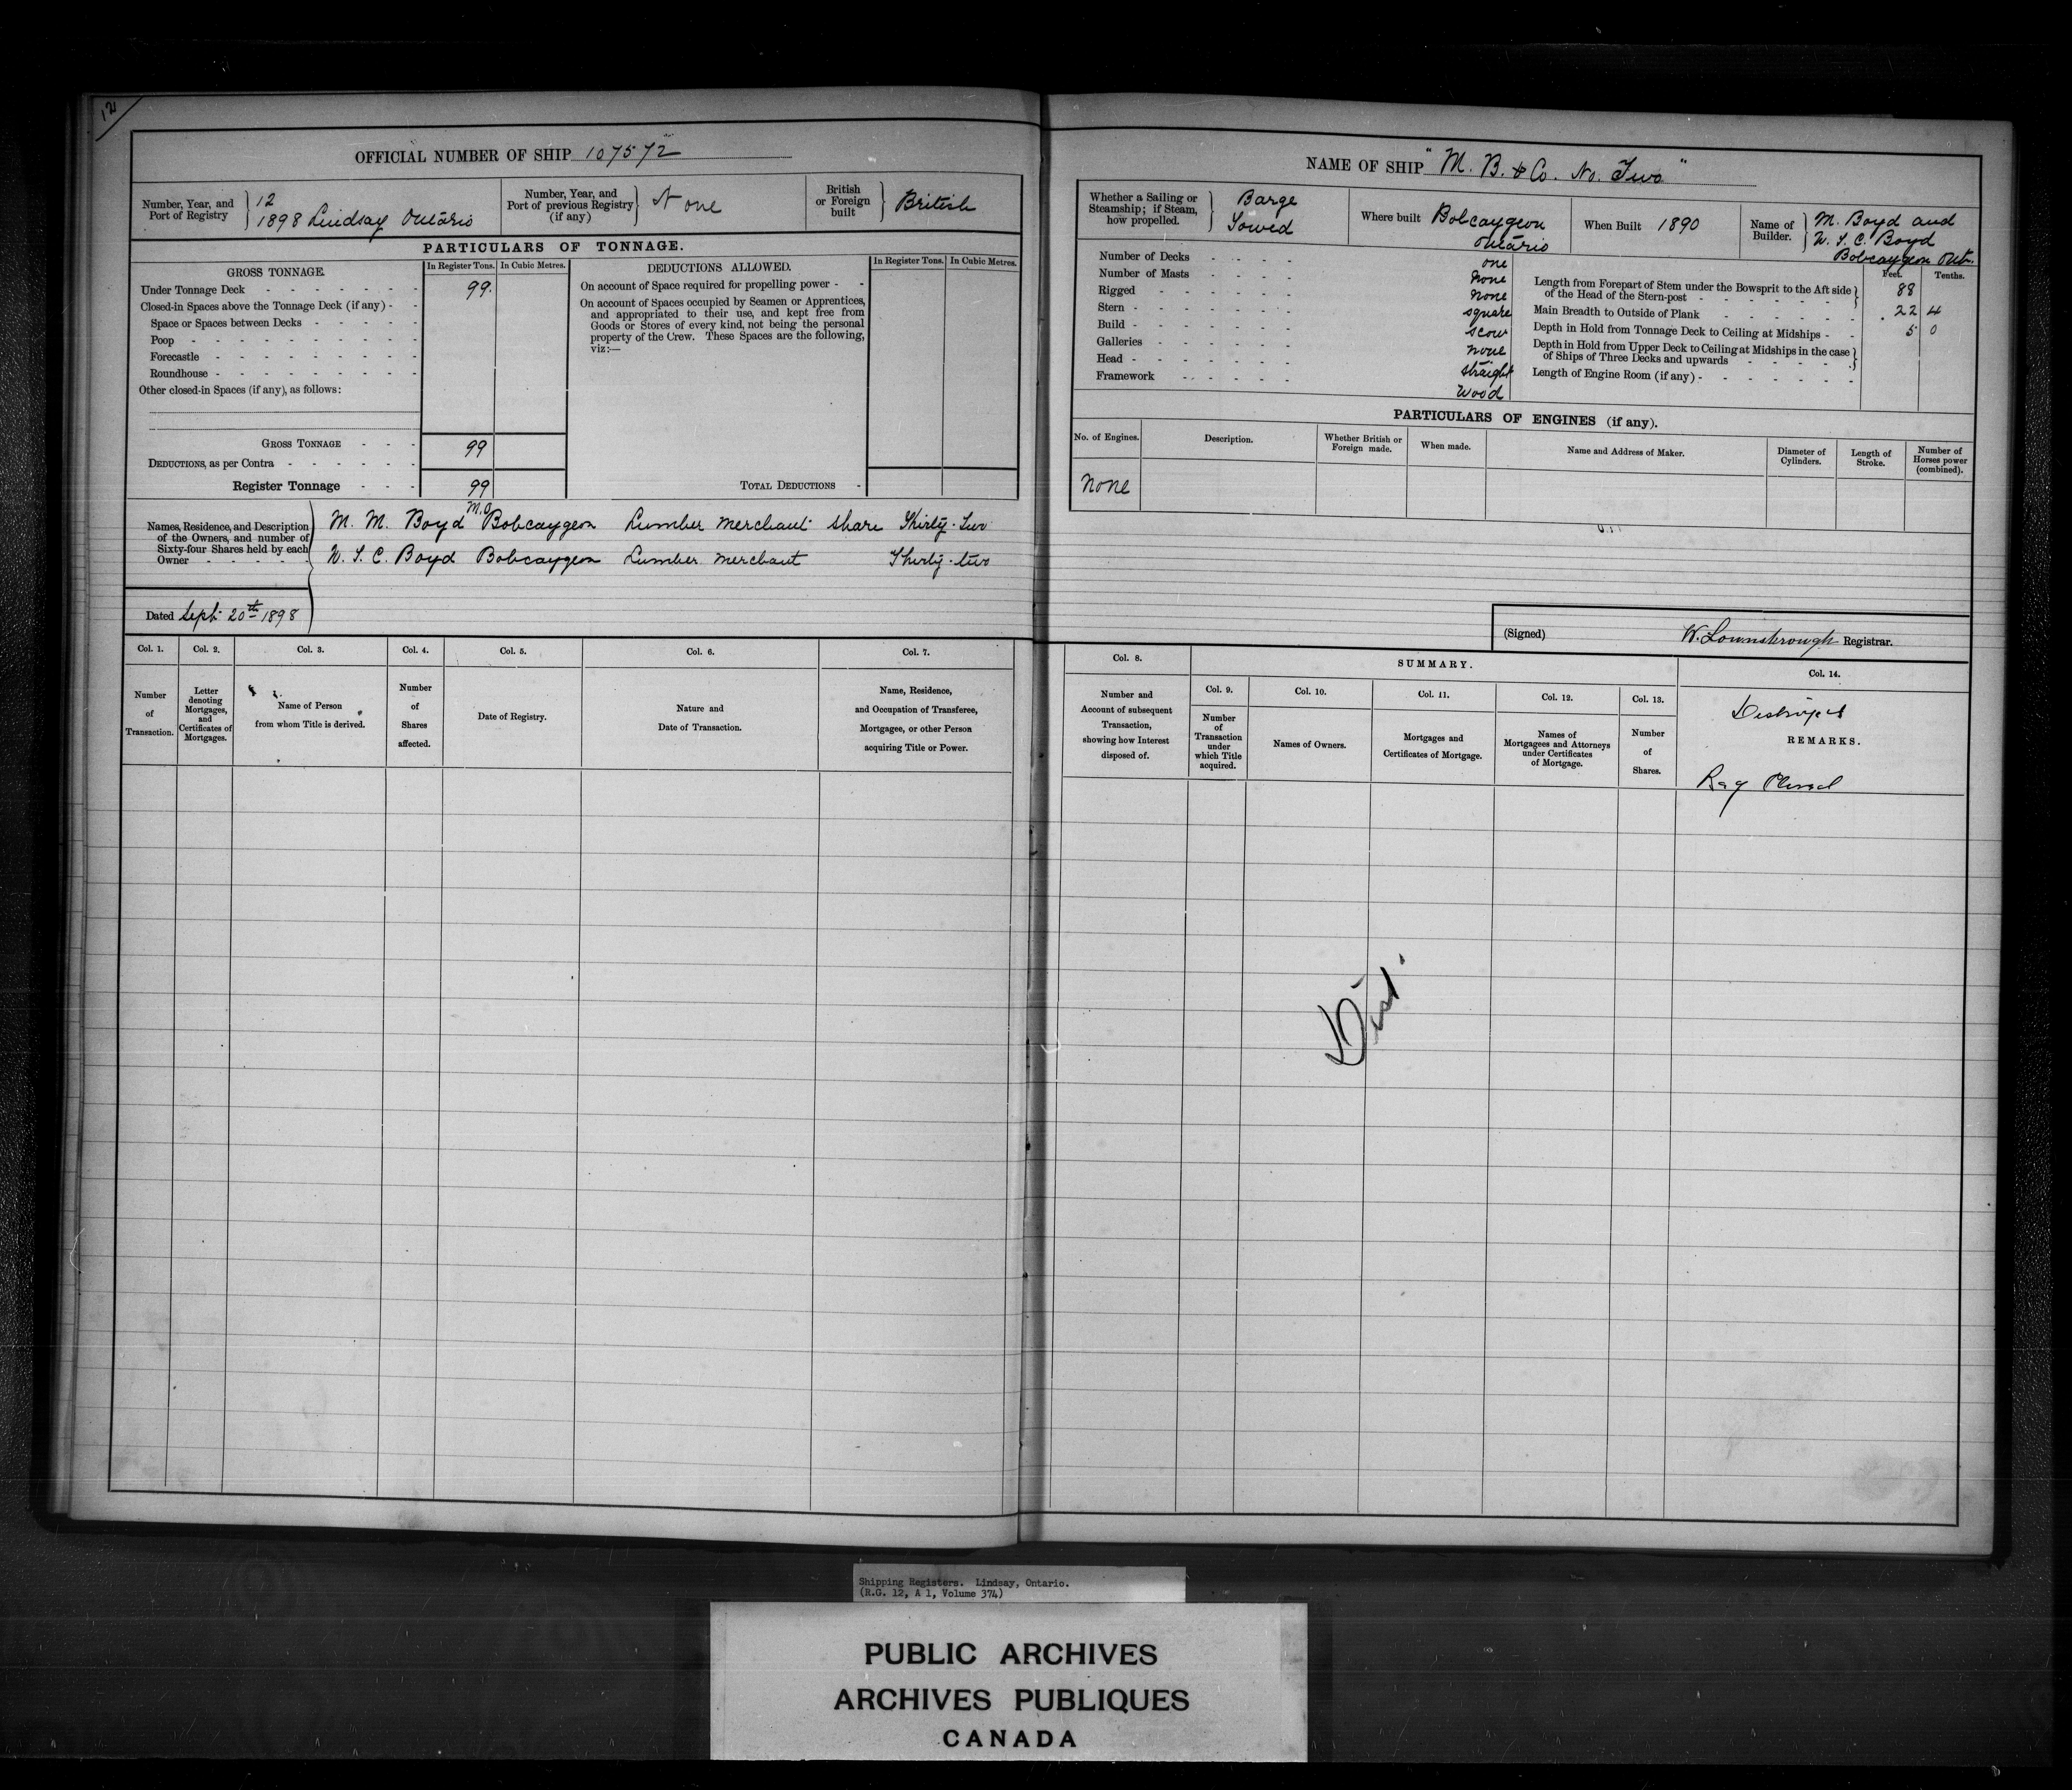 12
OFFICIAL NUMBER OF SHIP 107572
Number, Year, and
Port of Registry
12
1898 Lindsay Ontario
Number, Year, and
Port of previous Registry
(if any)
None
British
or Foreign
built
British
PARTICULARS OF TONNAGE.
GROSS TONNAGE.
In Register Tons.
In Cubic Metres.
DEDUCTIONS ALLOWED.
In Register Tons.
In Cubic Metres.
Under Tonnage Deck - - - - - - - 99.
Closed-in Spaces above the Tonnage Deck (if any) - -
Space or Spaces between Decks - - - - -
Poop - - - - - - - - - -
Forecastle - - - - - - - - -
Roundhouse - - - - - - - - -
Other closed-in Spaces (if any), as follows:
On account of Space required for propelling power - -
On account of Spaces occupied by Seamen or Apprentices,
and appropriated to their use, and kept free from
Goods or Stores of every kind, not being the personal
property of the Crew. These Spaces are the following,
viz:—
GROSS TONNAGE - - - 99
DEDUCTIONS, as per Contra - - - - - -
Register Tonnage - - - 99
TOTAL DEDUCTIONS -
Names, Residence, and Description
of the Owners, and number of
Sixty-four Shares held by each
Owner - - - - -
M. M. Boyd Bobcaygeon Lumber Merchant share Thirty-Two
W. T. C. Boyd Bobcaygeon Lumber Merchant Thirty-two
Dated Sept 20th 1898
Col. 1.
Col. 2.
Col. 3.
Col. 4.
Col. 5.
Col. 6.
Col. 7.
Number
of
Transaction.
Letter
denoting
Mortgages,
and
Certificates of
Mortgages.
Name of Person
from whom Title is derived.
Number
of
Shares
affected.
Date of Registry.
Nature and
Date of Transaction.
Name, Residence,
and Occupation of Transferee,
Mortgagee, or other Person
acquiring Title or Power.
NAME OF SHIP "M. B. & Co. No. Two"
Whether a Sailing or
Steamship; if Steam,
how propelled.
Barge
Towed
Where built Bobcaygeon
Ontario
When Built 1890
Name of
Builder.
M. Boyd and
W. T. C. Boyd
Bobcaygeon Ont.
Number of Decks - - - - one
Number of Masts - - - - None
Rigged - - - - - - None
Stern - - - - - - - square
Build - - - - - - - scow
Galleries - - - - - - none
Head - - - - - - - straight
Framework - - - - - Wood
Feet.
Tenths.
Length from Forepart of Stem under the Bowsprit to the Aft side
of the Head of the Stern-post - - - - - - 88
Main Breadth to Outside of Plank - - - - - - 22 4
Depth in Hold from Tonnage Deck to Ceiling at Midships - - 5 0
Depth in Hold from Upper Deck to Ceiling at Midships in the case
of Ships of Three Decks and upwards - - - - -
Length of Engine Room (if any) - - - - - - -
PARTICULARS OF ENGINES (if any).
No. of Engines.
Description.
Whether British or
Foreign made.
When made.
Name and Address of Maker.
Diameter of
Cylinders.
Length of
Stroke.
Number of
Horses power
(combined).
None
(Signed) W. Lownsbrough Registrar.
Col. 8.
SUMMARY.
Col. 14.
Col. 9.
Col. 10.
Col. 11.
Col. 12.
Col. 13.
Number and
Account of subsequent
Transaction,
showing how Interest
disposed of.
Number
of
Transaction
under
which Title
acquired.
Names of Owners.
Mortgages and
Certificates of Mortgage.
Names of
Mortgagees and Attorneys
under Certificates
of Mortgage.
Number
of
Shares.
Destroyed
REMARKS.
Reg Closed
Shipping Registers. Lindsay, Ontario.
(R.G. 12, A 1, Volume 374)
PUBLIC ARCHIVES
ARCHIVES PUBLIQUES
CANADA